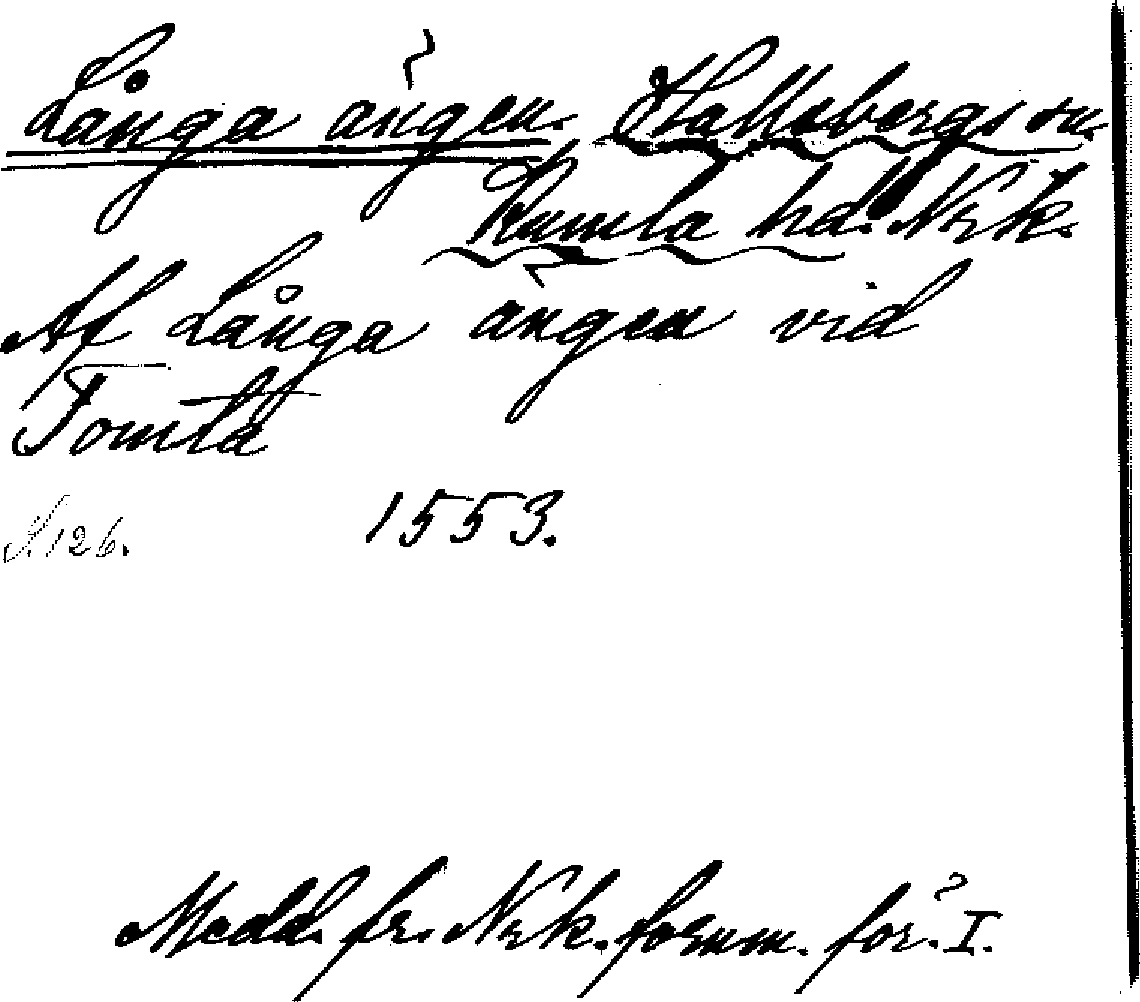 Långa ängen. Hallsbergs sn.
Kumla hd. Nrk.
Af Långa ängen vid
Tomta
S. 126. 1553.
Medd. fr. Nrk. fornm. för. I.